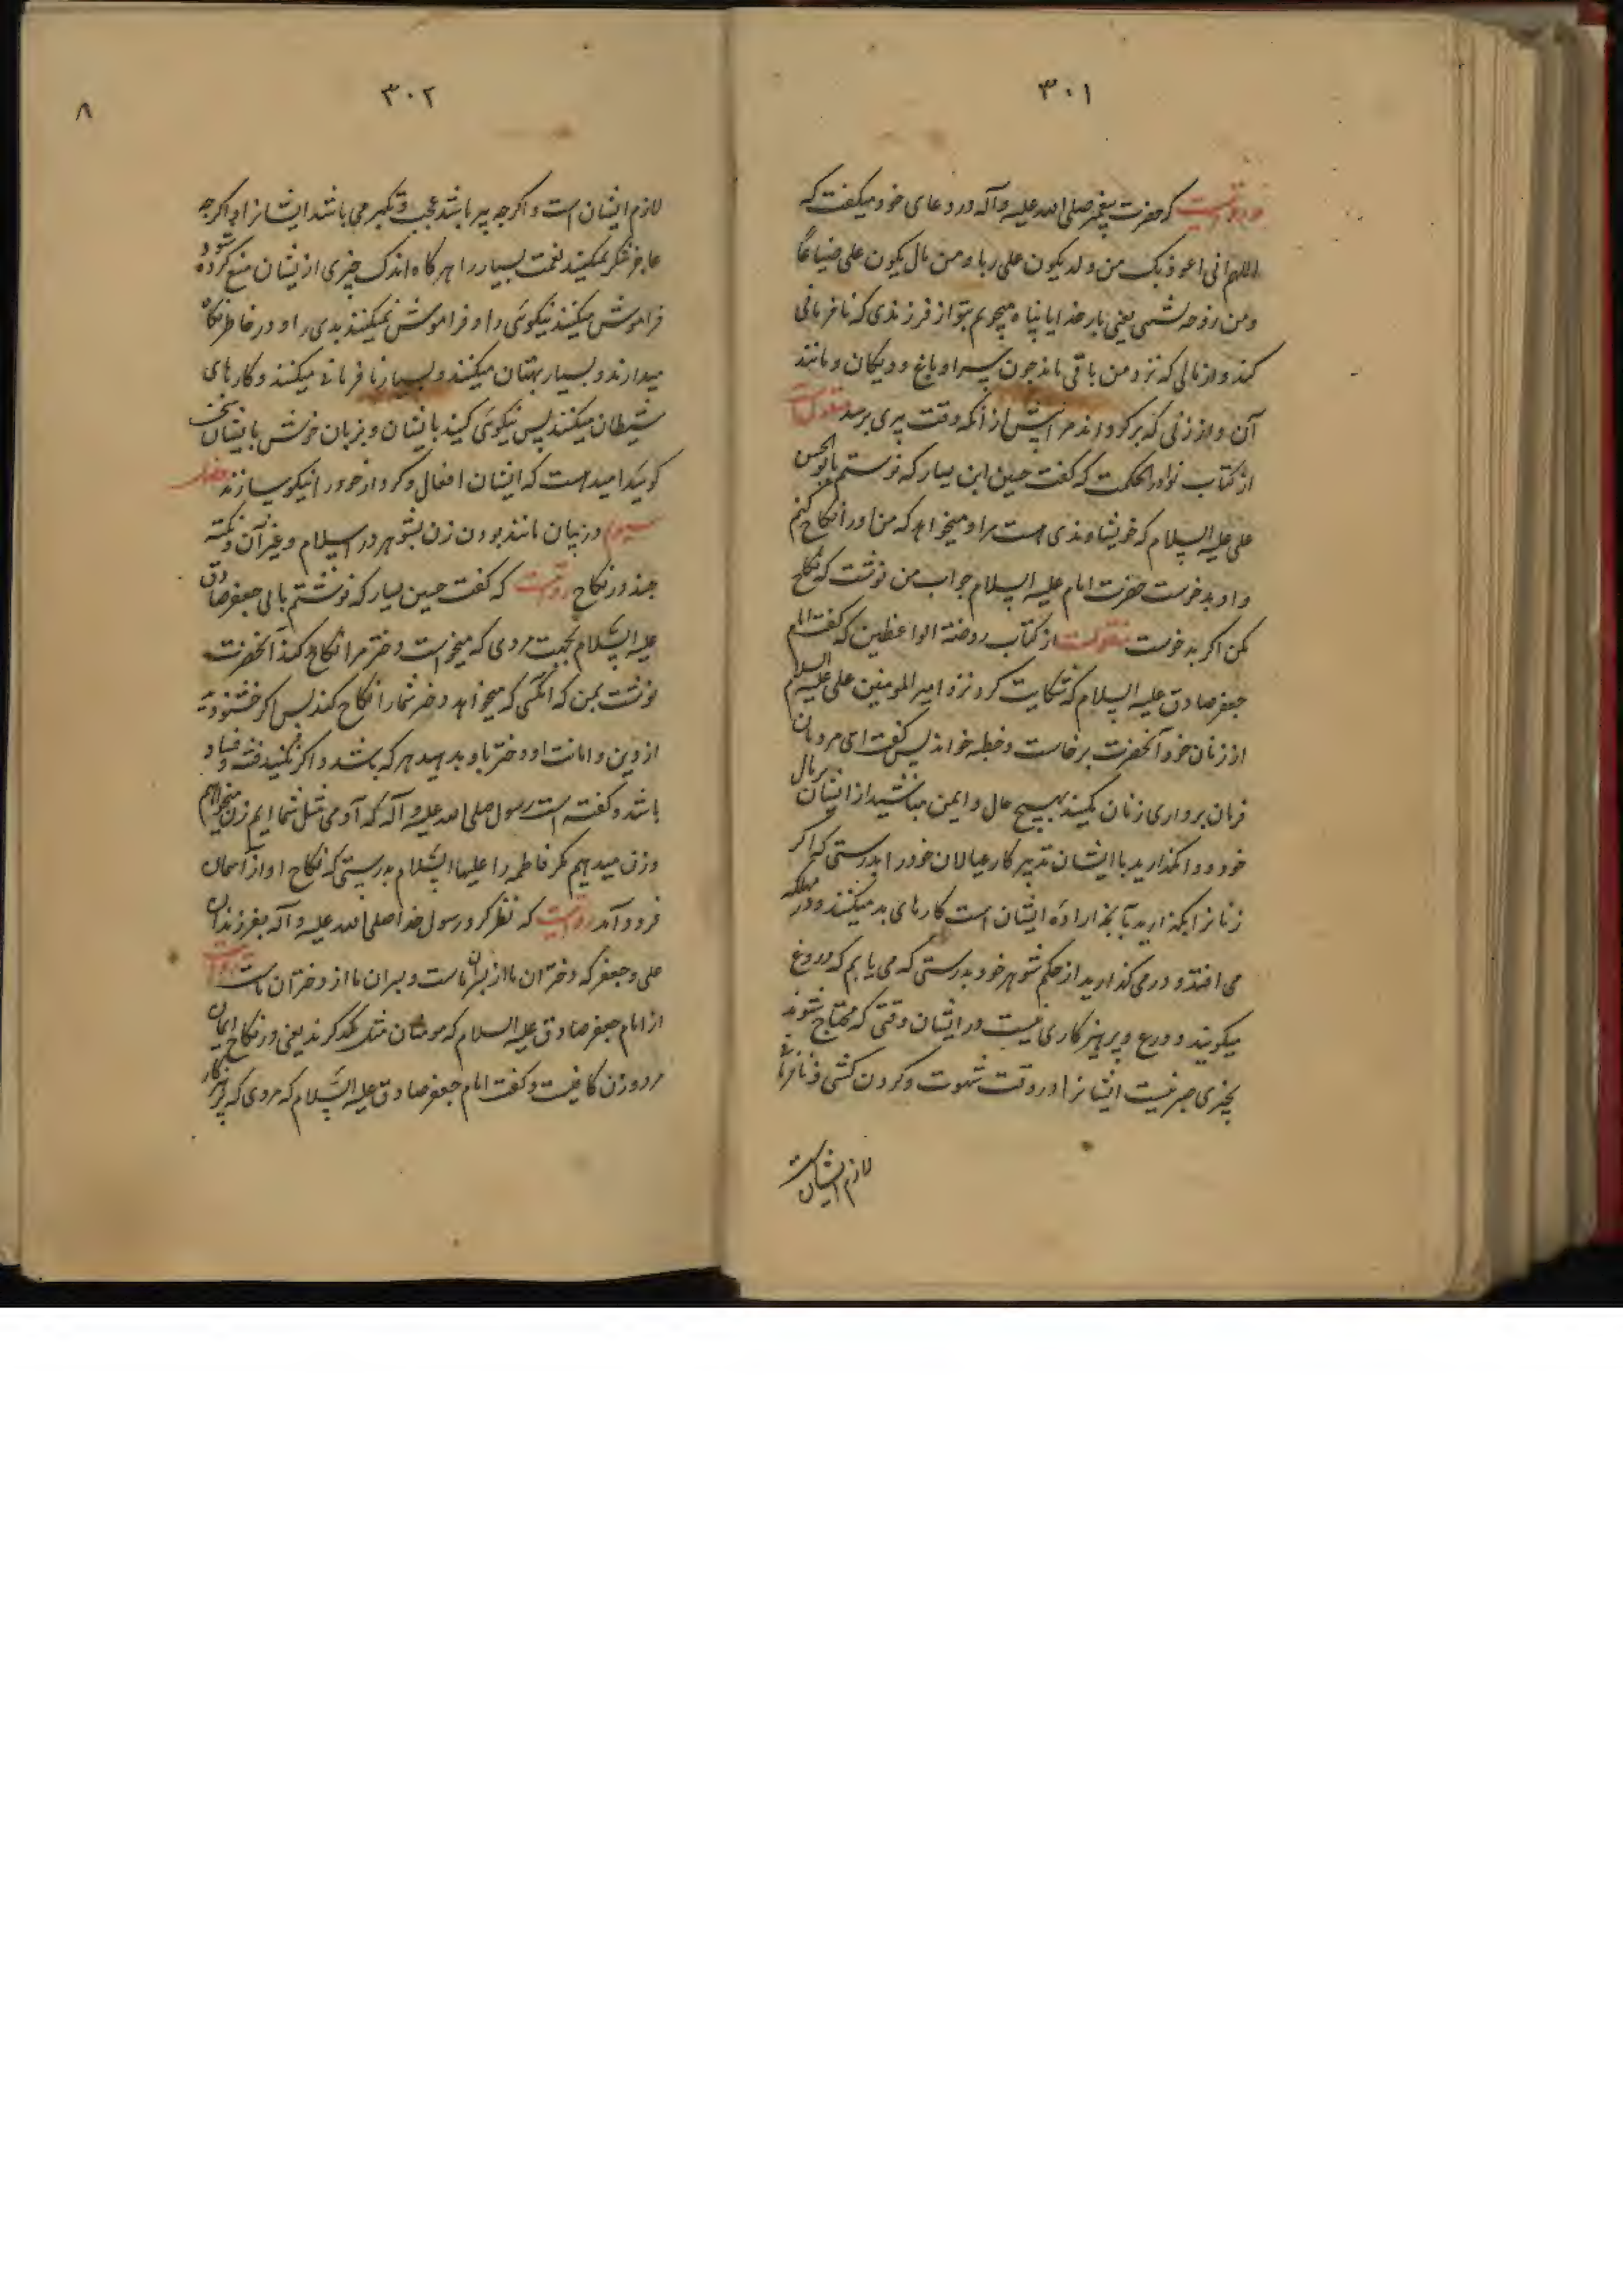 ۳۰۱
و روایتست که حضرت پیغمبر صلی الله علیه و آله در دعای خود میگفت که
اللهم انی اعوذ بک من ولد یکون علی ربا و من مال یکون علی ضیاعا
و من زوجه یعنی بار خدایا پناه میجویم بتو از فرزندی که نافرمانی
کند و از مالی که نزد من باقی ماند چون سرا و باغ و دیکان و مانند
آن و از زنی که پیر کرداند مرا پیش از آنکه وقت پیری برسد منقولست
از کتاب نوادر الحکمت که گفت حسین ابن بسار که نوشتم بابو الحسن
علی علیه السلام که خویشاوندی هست مرا و میخواهد که من او را نکاح کنم
و او بدخوست حضرت امام علیه السلام جواب من نوشت که نکاح
مکن اگر بدخوست منقولست از کتاب روضة الواعظین که گفت امام
جعفر صادق علیه السلام که شکایت کرد نزد امیر المومنین علی علیه السلام
از زنان خود آنحضرت برخاست و خطبه خواند پس گفت ای مردمان
فرمان برداری زنان مکنید بهیچ حال و ایمن مباشید از ایشان بر مال
خود و وامگذارید با ایشان تدبیر کار عیالان خود را بدرستی که اگر
زنانرا بگذارید تا بخیر اراده ایشان است کارهای بد میکنند و در مهلکه
می افتند و درمی گذارید از حکم شوهر خود بدرستی که می یابم که دروغ
میگویند و ورع و پرهیزکاری نیست در ایشان وقتی که محتاج شوند
بچیزی صبر نیست ایشانرا در وقت شهوت و کردن کشی و نافرمانی
لازم ایشانست
۳۰۲
۸
لازم ایشان است و اگرچه پیر باشد عجب و تکبر می باشد ایشانرا و اگرچه
عاجز شود شکر نمیکنند نعمت بسیار را هرگاه اندک چیزی از ایشان منع کرده
فراموش میکنند نیکوئی را و فراموش نمیکنند بدی را و در خاطر نگاه
میدارند و بسیار بهتان میکنند و بسیار نافرمانی میکنند و کارهای
شیطان میکنند پس نیکوئی کنید با ایشان و بزبان خوش با ایشان سخن
گوئید امید هست که ایشان افعال و کردار خود را نیکو سازند فصل
سیوم در بیان مانند بودن زن بشوهر در اسلام و غیر آن و نکته
چند در نکاح روایتست که گفت حسین بسار که نوشتم بابی جعفر صادق
علیه السلام بجهت مردی که میخواست دختر مرا نکاح کند آنحضرت
نوشت بمن که آنکسی که میخواهد دختر شما را نکاح کند پس اگر خشنودید
از دین و امانت او دختر باو بدهید هر که باشد و اگر نکنید فتنه و فساد
باشد و گفته است رسول صلی الله علیه و آله که آدمی مثل شما ایم زن میخواهم
و زن میدهیم مگر فاطمه را علیها السلام بدرستی که نکاح او از آسمان
فرود آمد روایتست که نظر کرد رسول خدا صلی الله علیه و آله بفرزندان
علی و جعفر که دختران ما از پسران ماست و پسران ما از دختران ماست روایت
از امام جعفر صادق علیه السلام که مومنان مثل یکدیگرند یعنی در نکاح ایمان
مرد و زن کافیست و گفت امام جعفر صادق علیه السلام که مردی که پرهیزکار